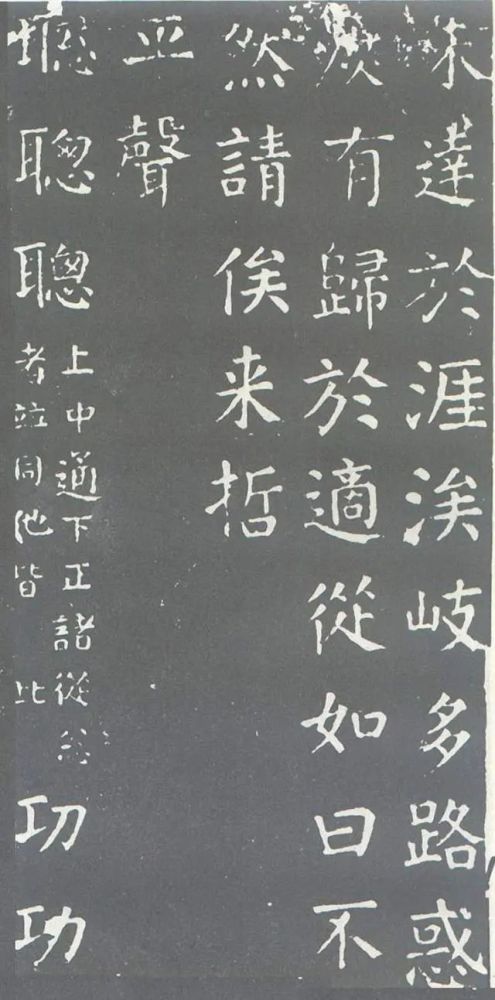 未達於涯涘岐多路惑
庻有歸於適從如曰不
然請俟来哲
平聲
聦聰
上中通下正諸從忩
者竝同他皆 此
㓛功